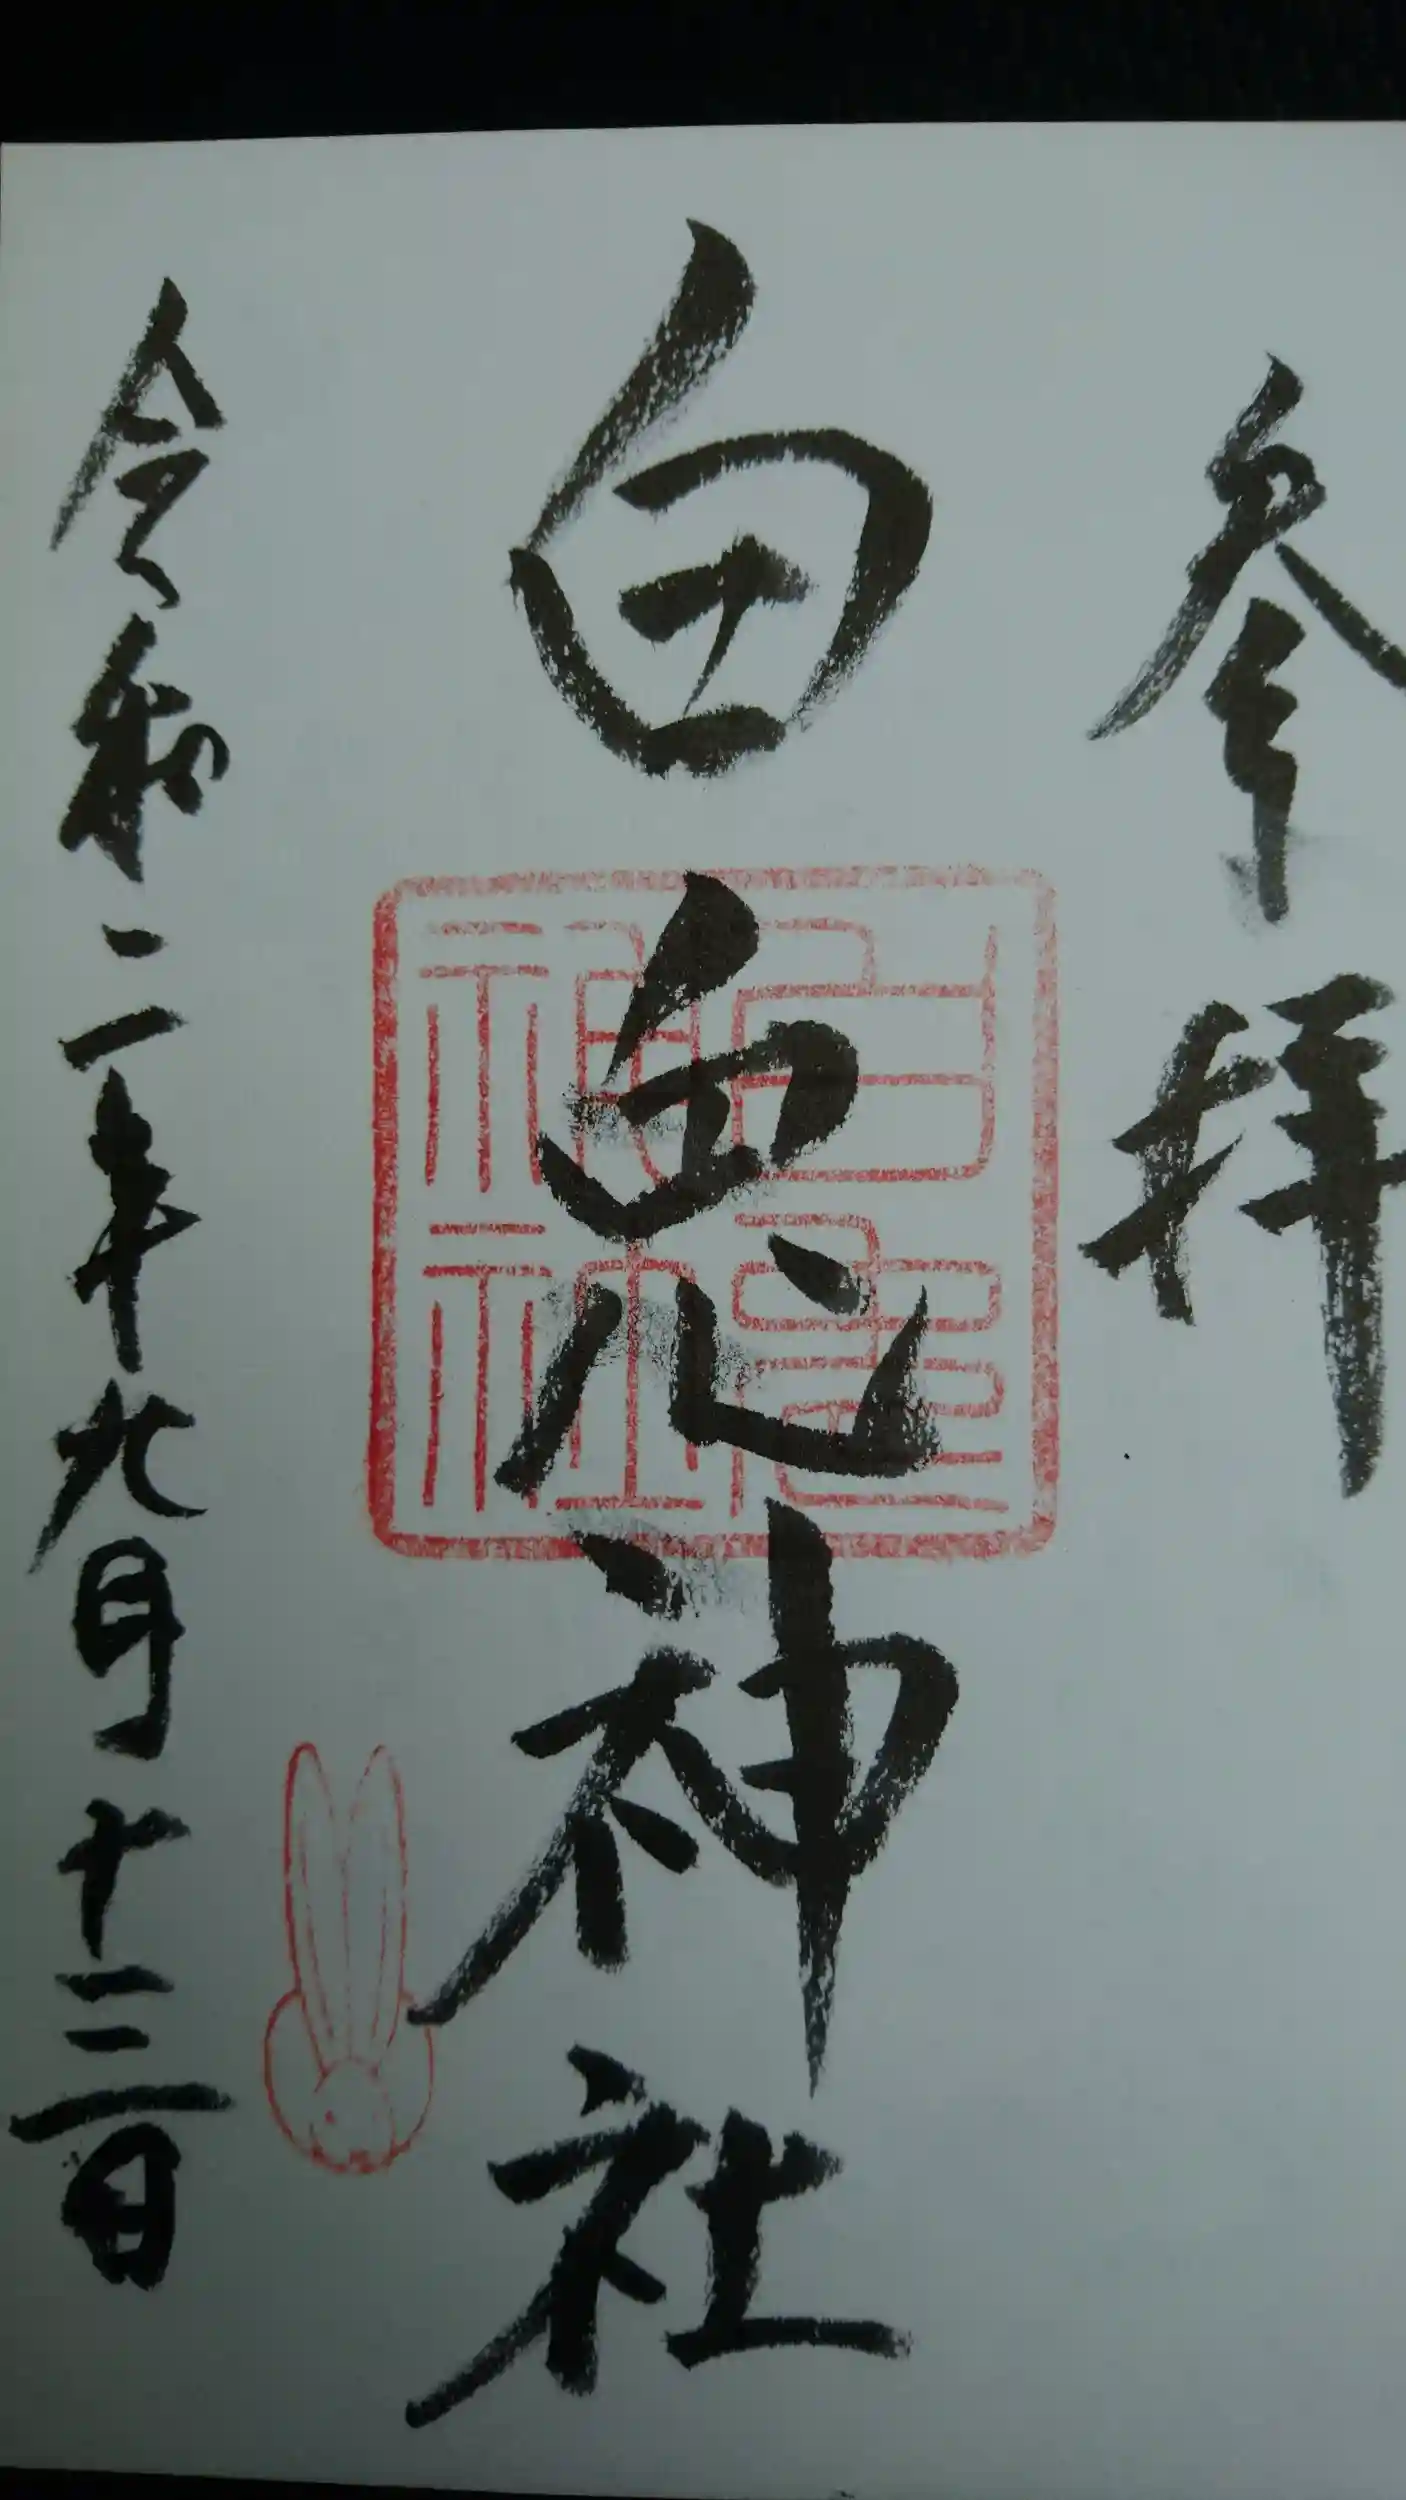 奉拝
白兎神社
白兎神社
令和二年九月十三日